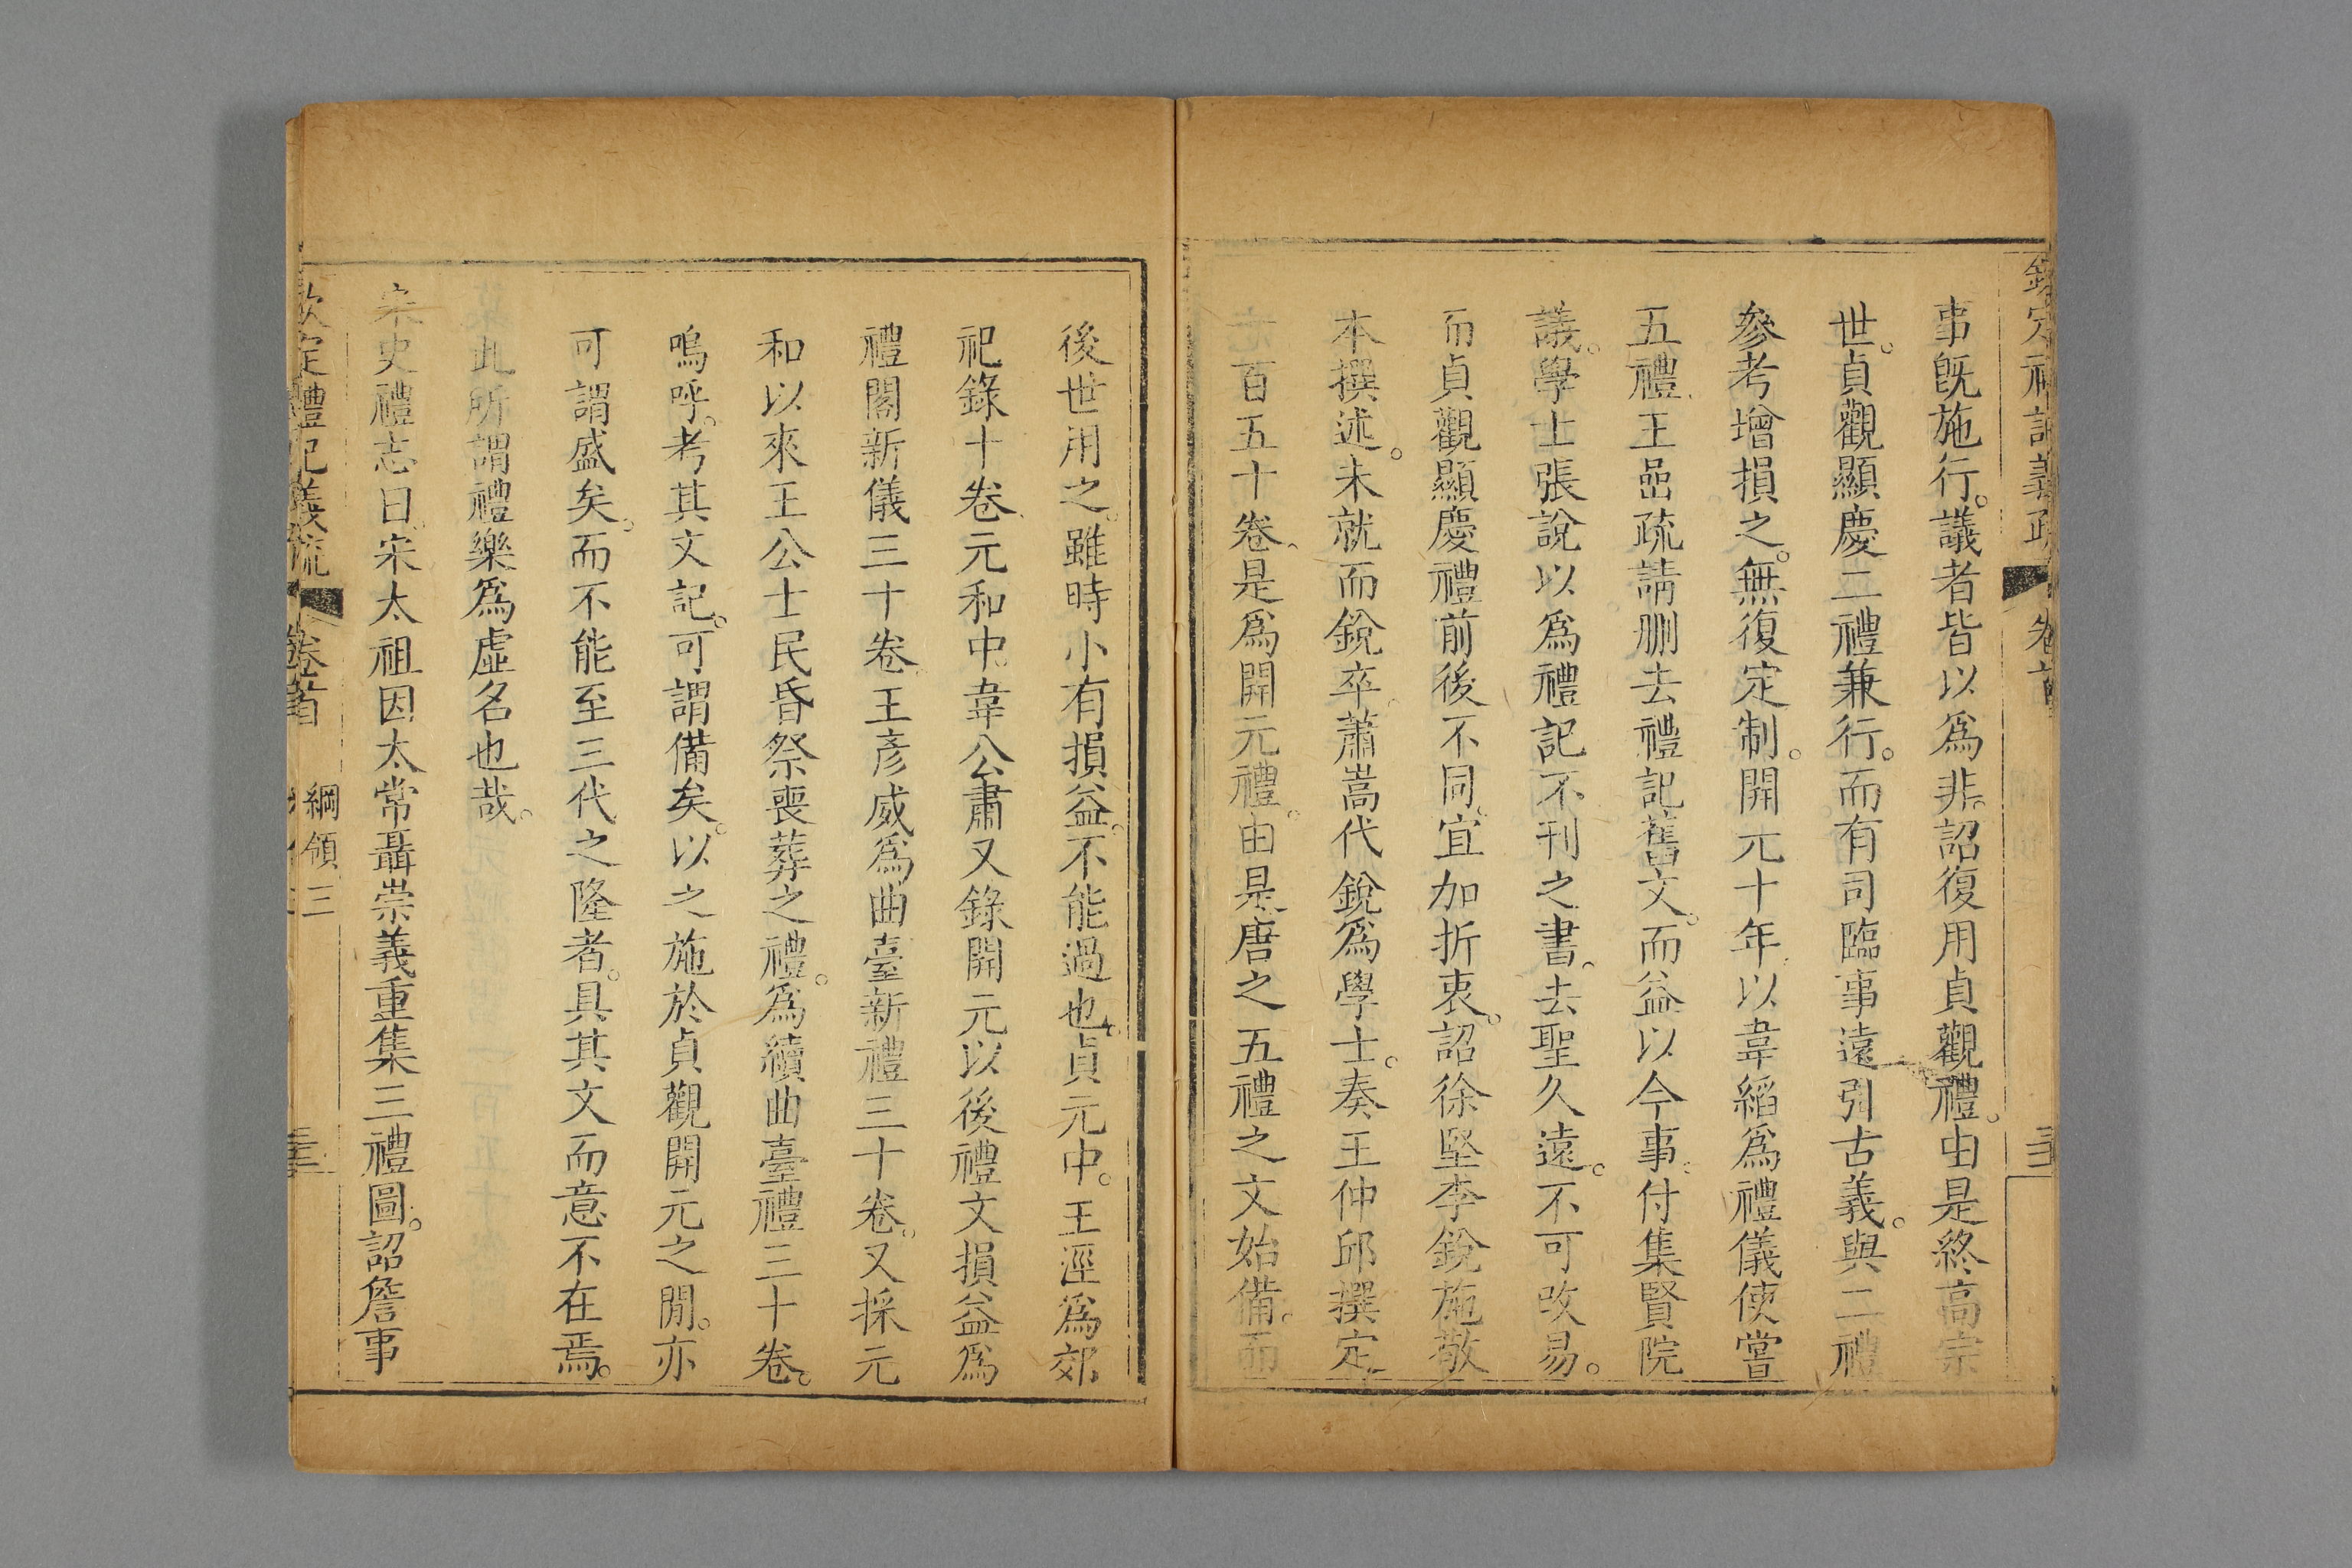 事旣施行。議者皆以爲非。詔復用貞觀禮。由是終高宗
世。貞觀顯慶二禮兼行。而有司臨事遠引古義。與二禮
參考增損之。無復定制。開元十年、以韋縚爲禮儀使嘗
五禮、王嵒疏請刪去禮記舊文。而益以今事。付集賢院
議。學士張說以爲禮記不刊之書、去聖久遠。不可改易。
而貞觀顯慶禮前後不同。宜加折衷。詔徐堅李銳施敬
本撰述。未就而銳卒、蕭嵩代銳爲學士。奏王仲邱撰定、
百五十卷、是爲開元禮。由是唐之五禮之文始備。而
後世用之。雖時小有損益。不能過也、貞元中。王涇爲郊
祀錄十卷、元和中、韋公肅又錄開元以後禮文損益爲
禮閣新儀三十卷、王彥威爲曲臺新禮三十卷。又採元
和以來王公士民昏祭喪葬之禮。爲續曲臺禮三十卷。
嗚呼。考其文記。可謂備矣。以之施於貞觀開元之閒。亦
可謂盛矣。而不能至三代之隆者。具其文而意不在焉。
此所謂禮樂爲虛名也哉。
宋史禮志曰、宋太祖因太常聶崇義重集三禮圖。詔詹事
欽定禮記義疏 卷首 綱領三